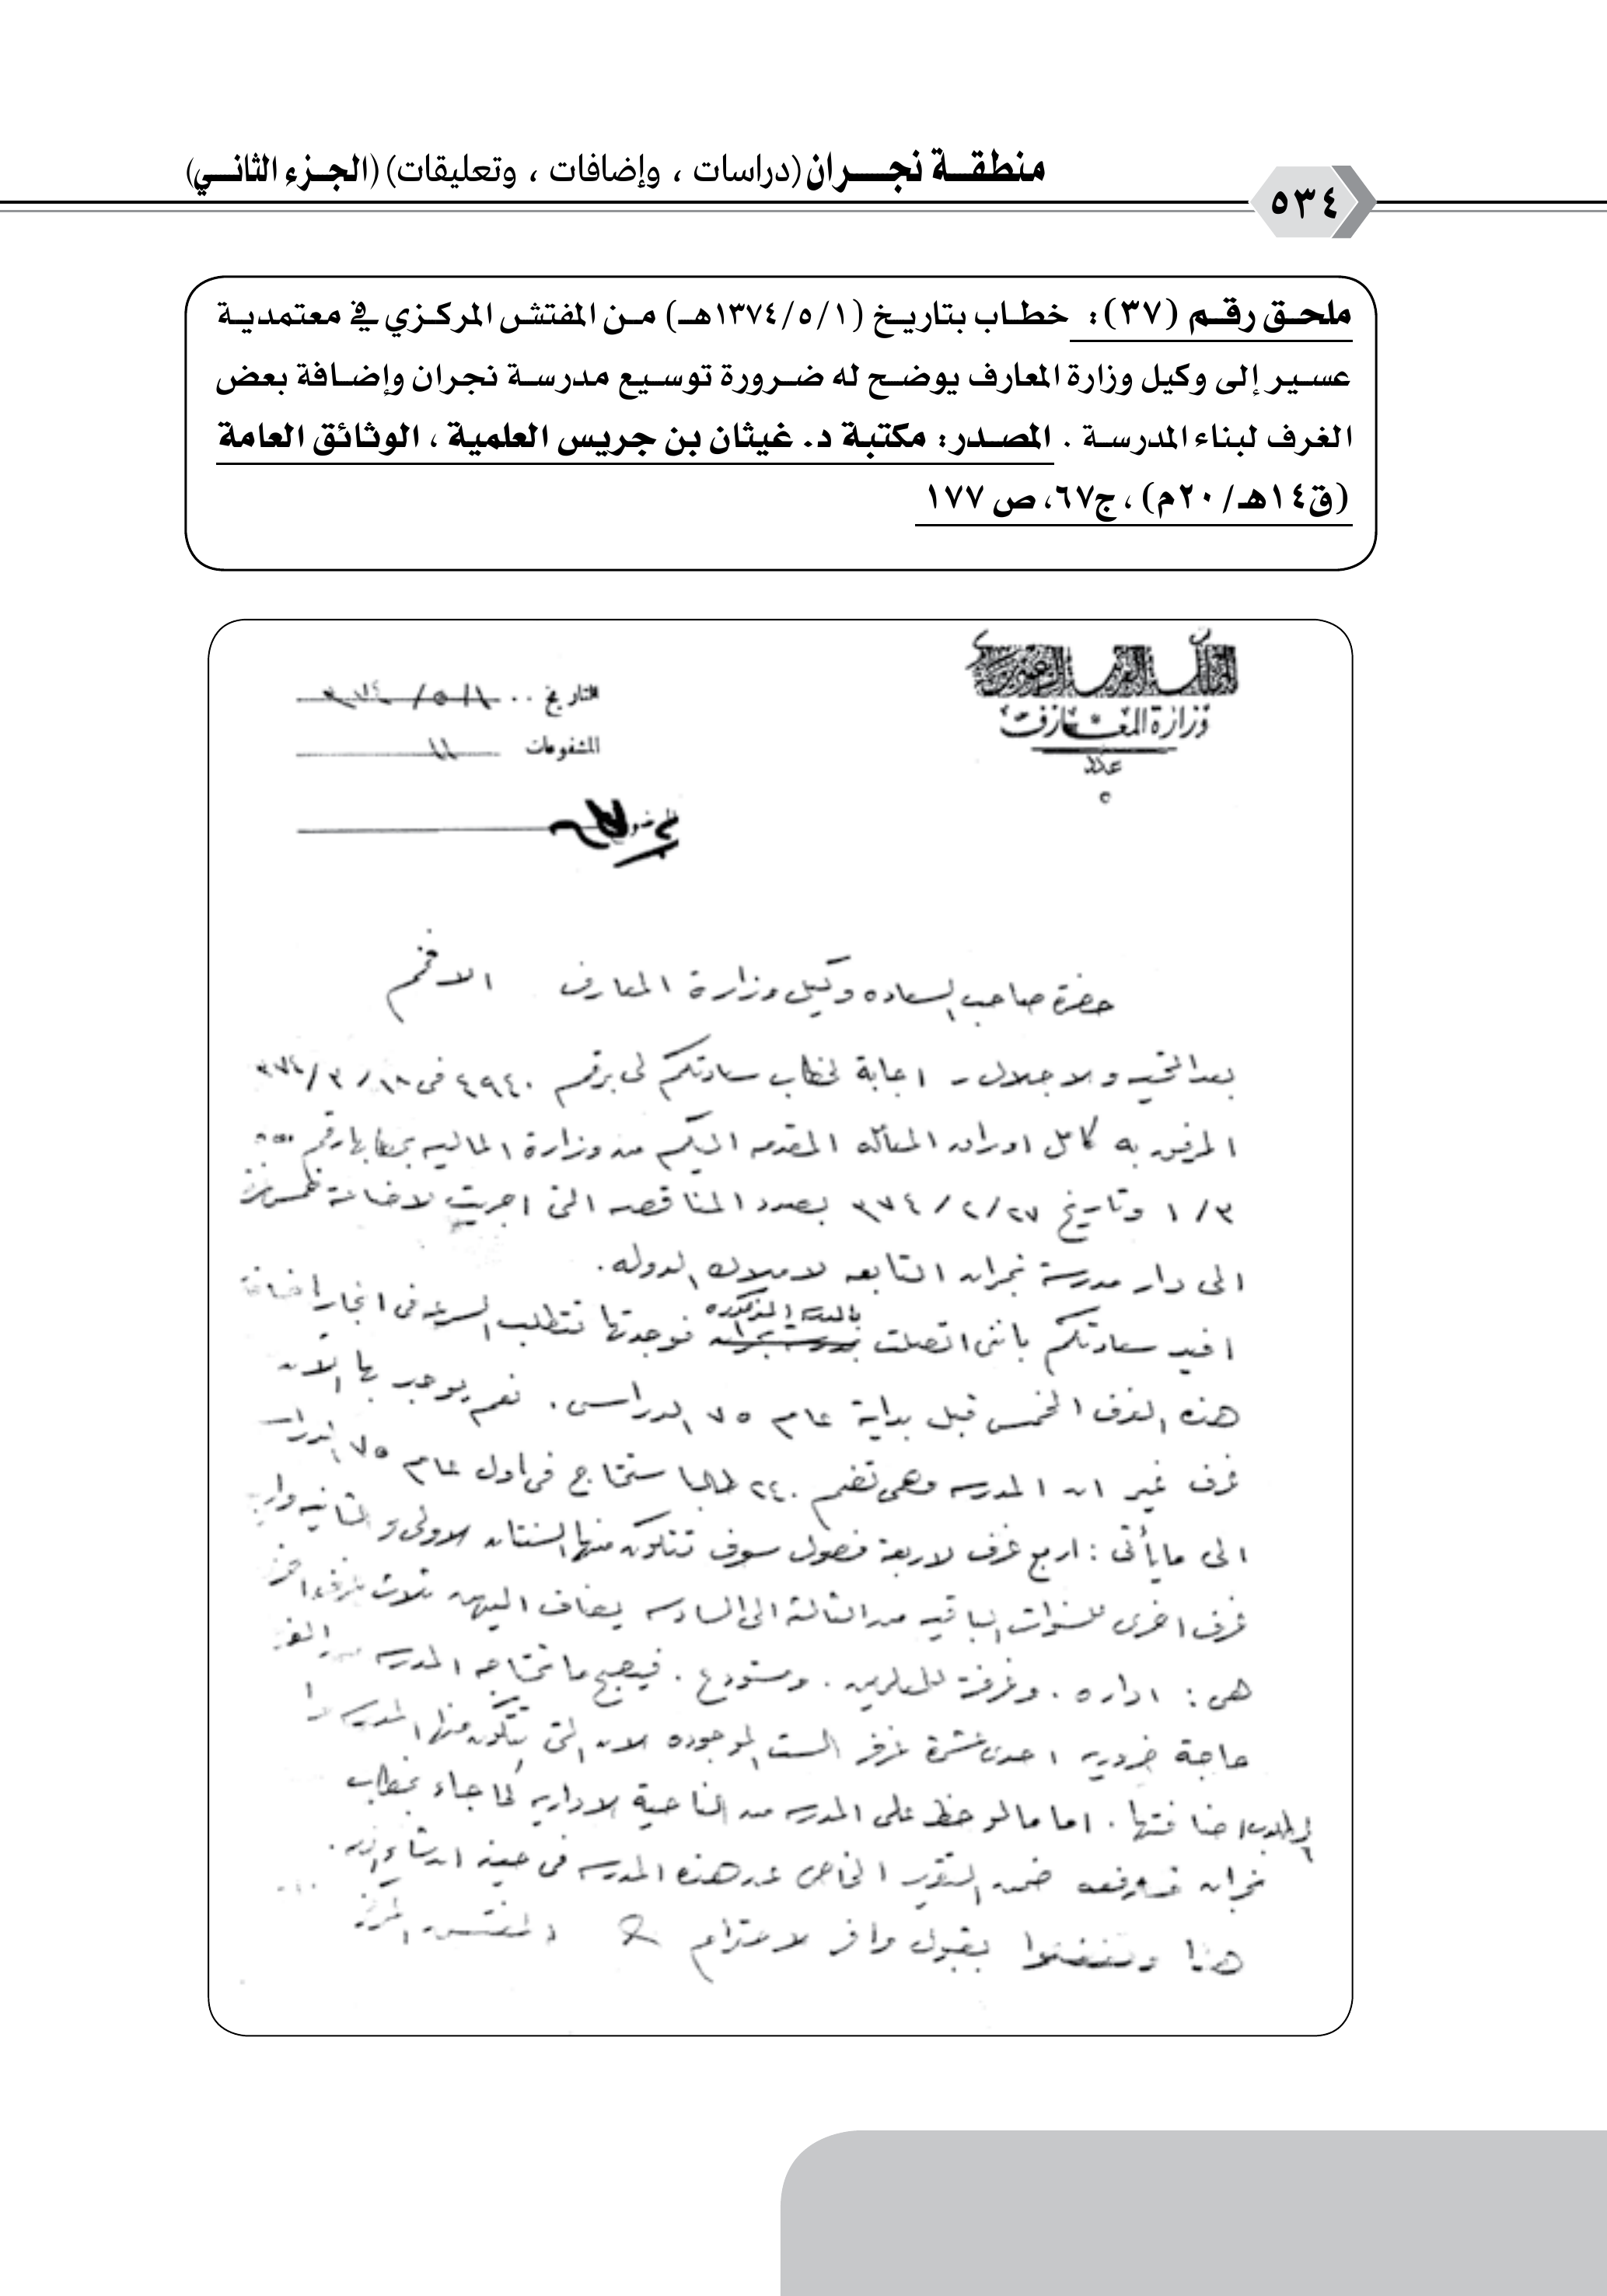 منطقة نجران (دراسات ، وإضافات ، وتعليقات) (الجزء الثاني)
٥٣٤
ملحق رقم (٣٧): خطاب بتاريخ (١٣٧٤/٥/١هـ) من المفتش المركزي في معتمدية
عسير إلى وكيل وزارة المعارف يوضح له ضرورة توسيع مدرسة نجران وإضافة بعض
الغرف لبناء المدرسة . المصدر: مكتبة د. غيثان بن جريس العلمية ، الوثائق العامة
(ق١٤هـ/٢٠م) ، ج٦٧، ص ١٧٧
المملكة العربية السعودية
وزارة المعارف
عدد
٥
التاريخ ١/٥/٣٧٤
المشفوعات ١١
حضرة صاحب السعاده وكيل وزارة المعارف الافخم
بعد التحيه والاجلال - اجابة لخطاب سعادتكم لى برقم ٤٩٤٠ فى ١٨/٣/٣٧٤
المرفق به كامل اوراق المسألة المقدمه اليكم من وزارة الماليه بخطابها رقم
٣/١ وتاريخ ٢٧/٢/٣٧٤ بصدد المناقصه التى اجريت لاضافة خمس غرف
الى دار مدرسة نجران التابعه لاملاك الدوله.
افيد سعادتكم باننى اتصلت بالمدرسه المذكوره فوجدتها تتطلب السرعه فى انجاز اضافة
هذه الغرف الخمس قبل بداية عام ٧٥ الدراسى . نعم يوجد بها الان
غرف غير ان المدرسه وهى تضم ٢٤٠ طالبا ستحتاج فى اول عام ٧٥ الدراسى
الى ما يأتى : اربع غرف لاربعة فصول سوف تتكون منها السنتان الاولى والثانيه واربع
غرف اخرى للسنوات الباقيه من الثالثة الى السادسه يضاف اليهن ثلاث غرف اخرى
هى : اداره . وغرفة للمدرسين . ومستودع . فيصبح ما تحتاجه المدرسه من الغرف
حاجة ضروريه احدى عشرة غرفة الست الموجوده الان التى تتكون منها المدرسه
المطلوب اضافتها . اما ما لوحظ على المدرسه من الناحية الاداريه كما جاء بخطاب
نجران فسارفعه ضمن التقرير الخاص عن هذه المدرسه فى حينه ان شاء الله .
هذا وتفضلوا بقبول وافر الاحترام المفتش المركزى